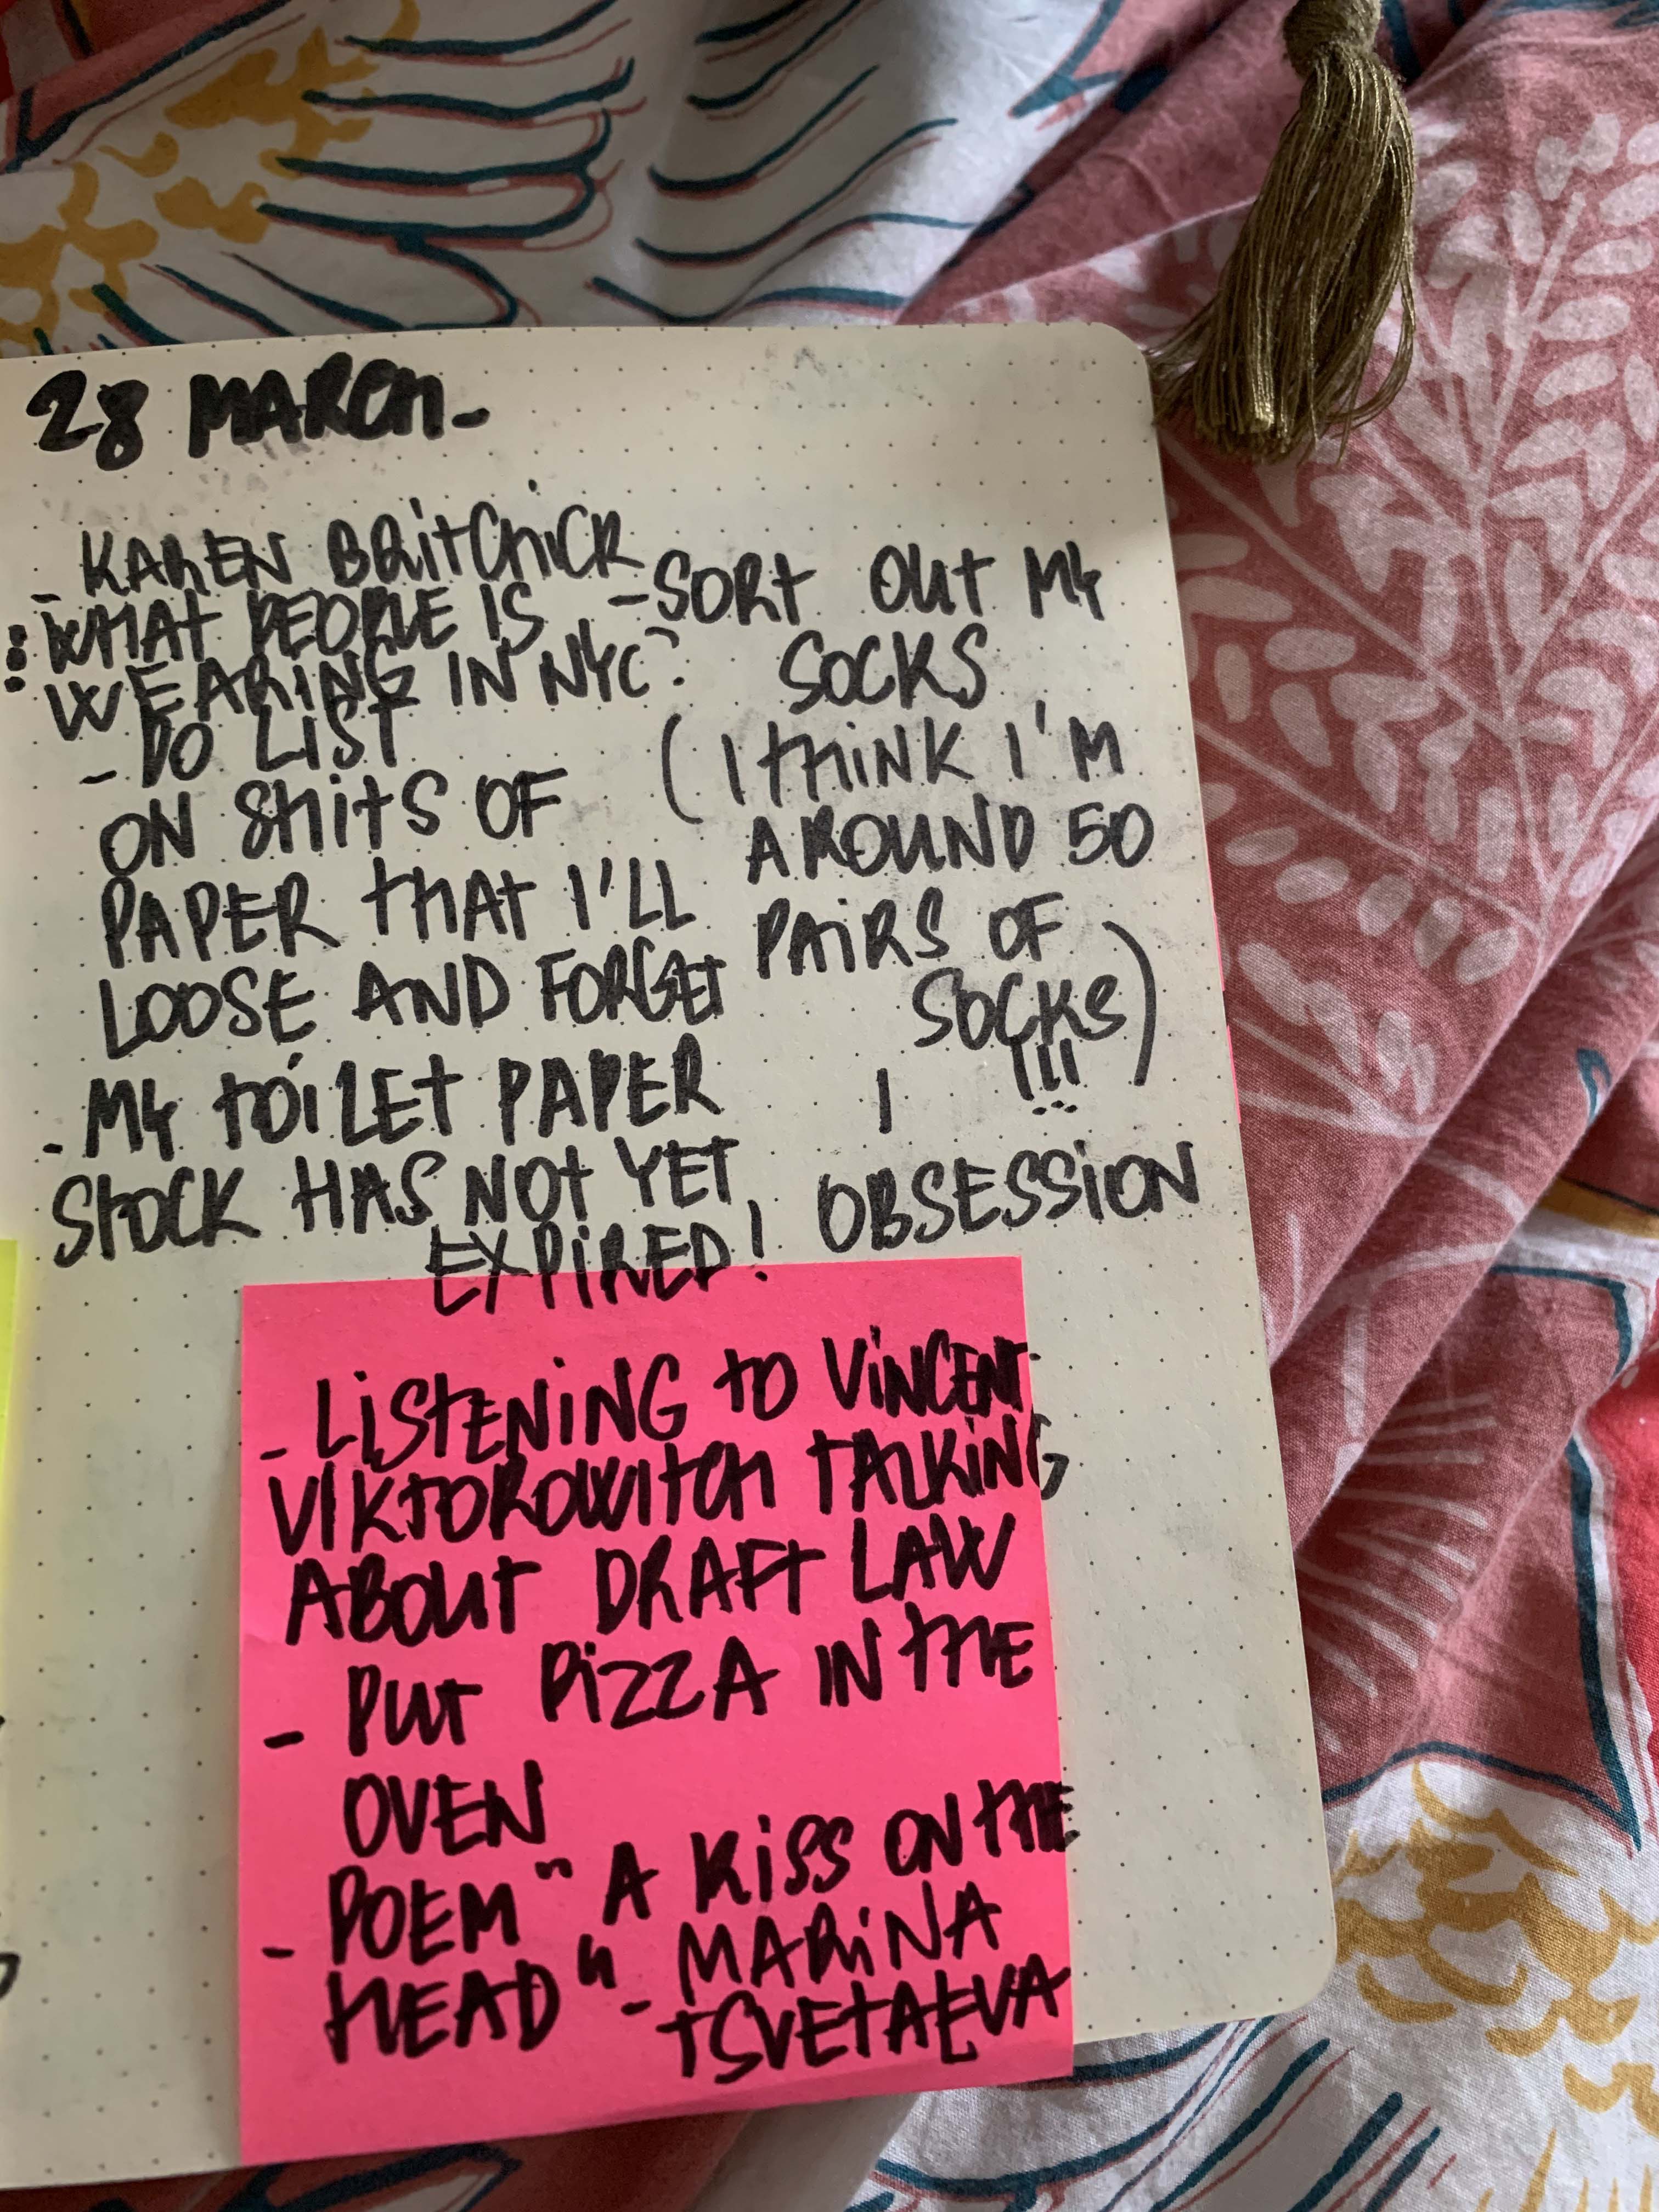 28 MARCH-
- KAREN BRITCHICK
: WHAT PEOPLE IS
WEARING IN NYC?
- DO LIST
ON SHITS OF
PAPER THAT I'LL
LOOSE AND FORGET
- MY TOILET PAPER
STOCK HAS NOT YET
EXPIRED!
- SORT OUT MY
SOCKS
(I THINK I'M
AROUND 50
PAIRS OF
SOCKS)
!!!
|
OBSESSION
- LISTENING TO VINCENT
VIKTOROWITCH TALKING
ABOUT DRAFT LAW
- PUT PIZZA IN THE
OVEN
- POEM "A KISS ON THE
HEAD" - MARINA
TSVETAEVA